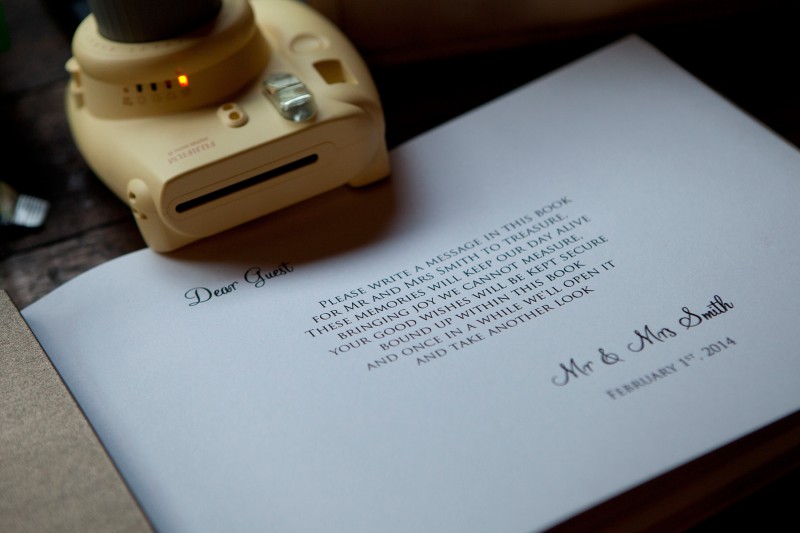 FUJIFILM
Dear Guest
Please write a message in this book
for Mr and Mrs Smith to treasure.
These memories will keep our day alive
bringing joy we cannot measure.
Your good wishes will be kept secure
bound up within this book
and once in a while we'll open it
and take another look
Mr & Mrs Smith
February 1st . 2014